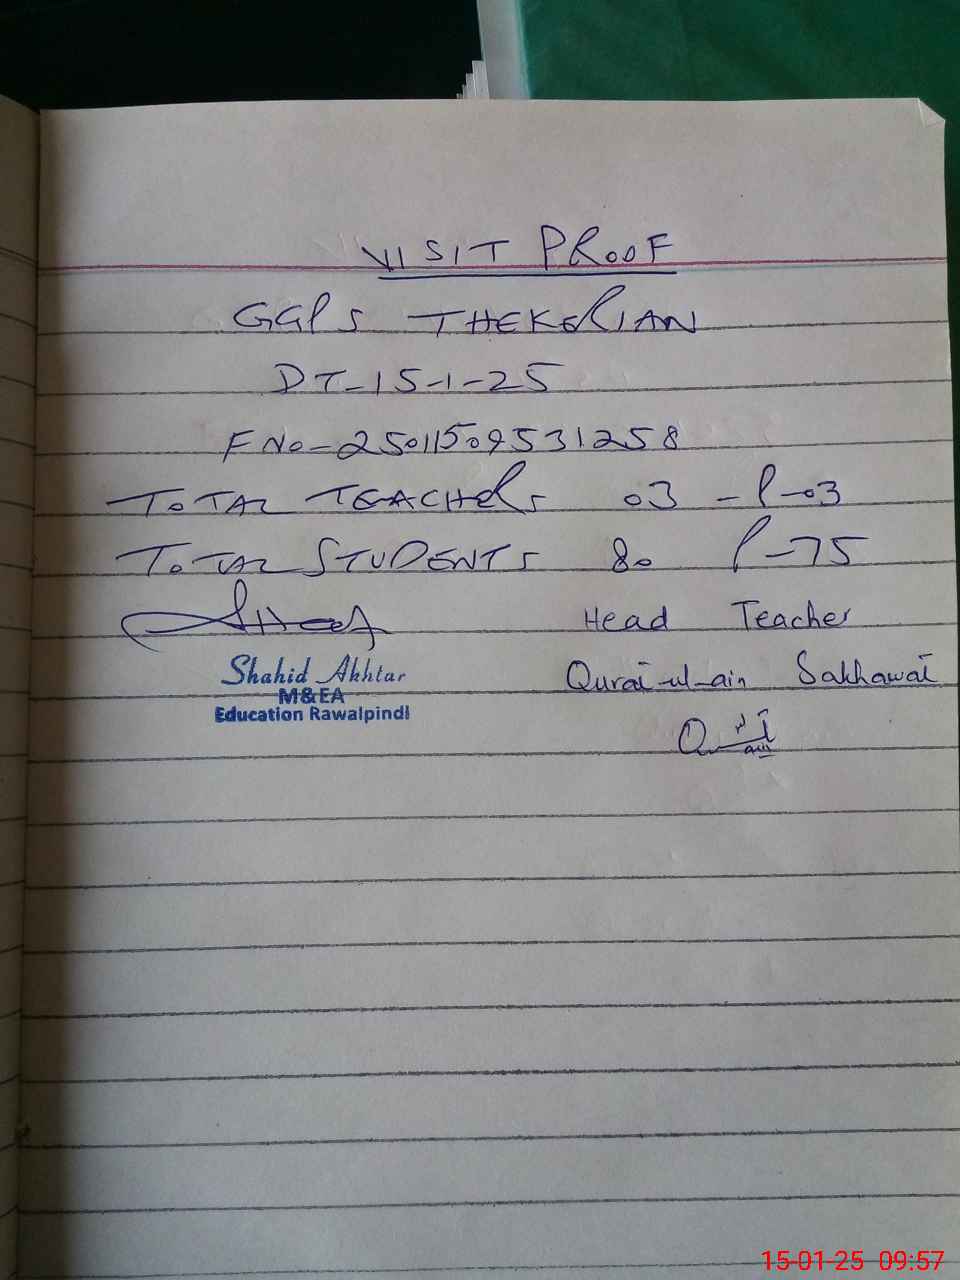 VISIT PROOF
GGPS THEKERIAN
DT-15-1-25
F No-25011509531258
TOTAL TEACHERS 03 - P-03
TOTAL STUDENTS 80 P-75
Head Teacher
Shahid Akhtar
M&EA
Education Rawalpindi
Qurat-ul-ain Sakhawat
15-01-25 09:57